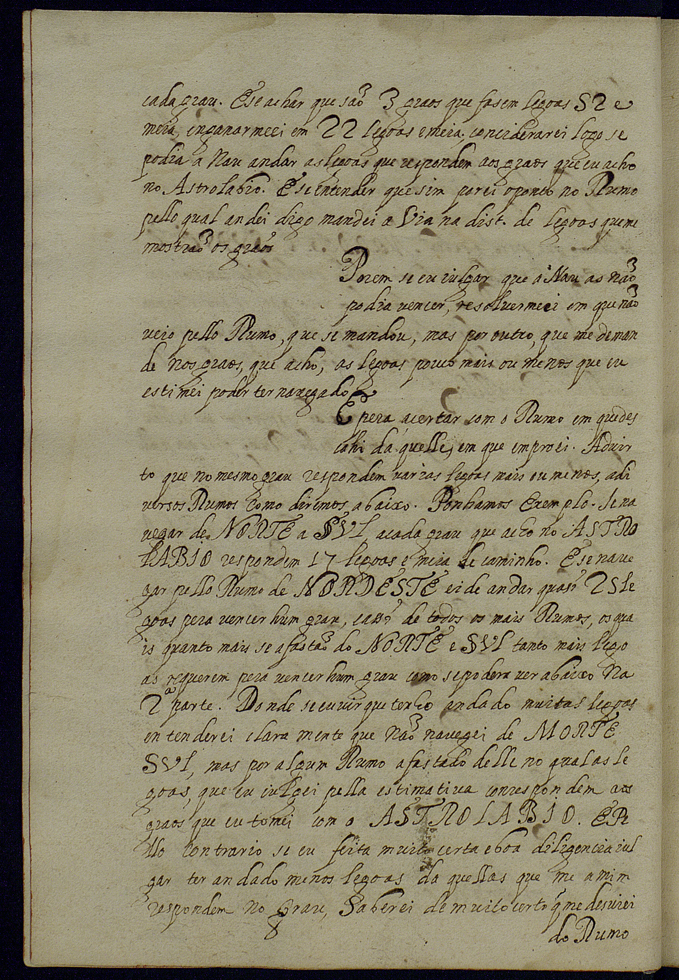 cada grau. E se achar que saõ 3 graos que fasem legoas 52 e
meia, enganarmeei em 22 legoas e meia, conciderarei logo se
podia a Nau andar as legoas que respondem aos graos que eu acho
no Astrolabio. E se entender que sim porei o ponto no Rumo
pello qual andei digo mandei a Via na dist. de legoas que me
mostraõ os graos
Porem se eu iulgar que a Nau as naõ
podia vencer, resoluermeei em que naõ
veio pello Rumo, que se mandou, mas por outro, que me deman
de nos graos, que acho, as legoas pouco mais ou menos que eu
estimei poder ter navegado
E pera acertar com o Rumo em que des
cahi da quelle, em que emproei. Aduir
to que no mesmo grau respondem varias legoas mais ou menos, a di
versos Rumos como diremos abaixo. Ponhamos Exemplo. Se na
vegar de NORTE a SVL a cada grau que acho no ASTRO
LABIO respondem 17 legoas e meia de caminho. E se nave
gar pello Rumo de NORDESTE ei de andar quasi 25 le
goas pera vencer hum grau, de todos os mais Rumos, os qua
is quanto mais se afastaõ do NORTE e SVL tanto mais lego
as requerem pera vencer hum grau como se podera ver abaixo Na
2ª parte. Donde se eu vir que tenho andado muitas legoas
entenderei clara mente que Naõ naveguei de NORTE
SVL, mas por algum Rumo afastado delle no qual as le
goas, que eu iulgei pella estimativa correspondem aos
graos que eu tomei com o ASTROLABIO. E Pe
llo contrario se eu feita muito certa e boa diligencia iul
gar ter andado menos legoas da quellas que me a mim
respondem no Grau, Saberei de muito certo q̃ me desviei
8
do Rumo